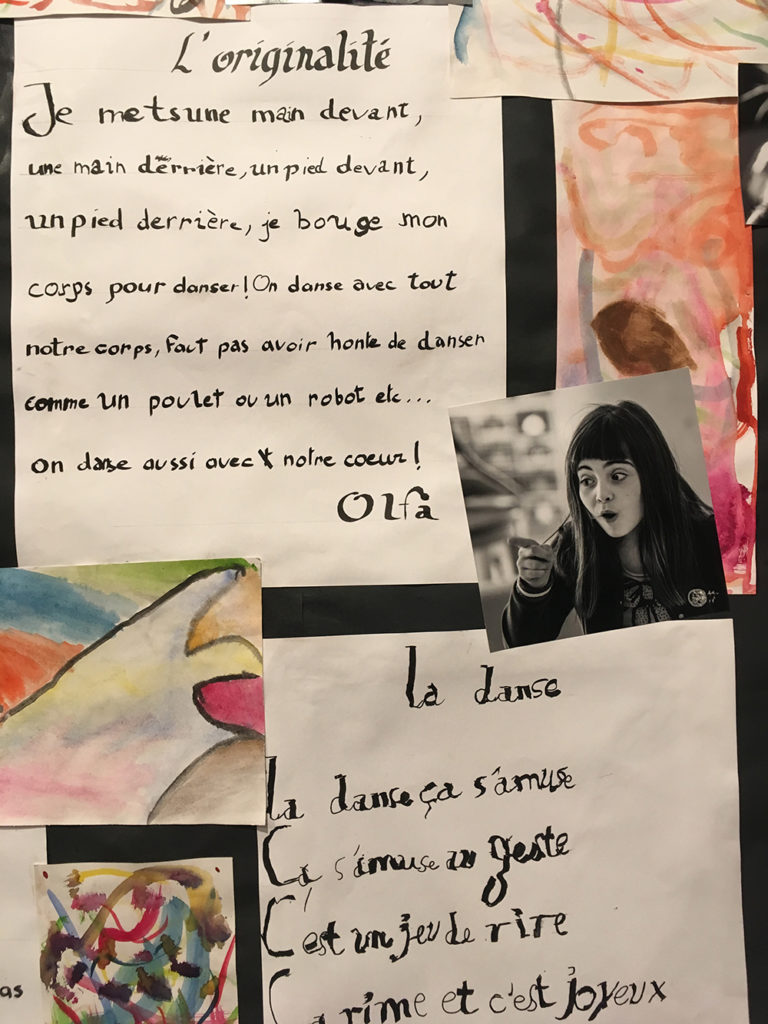 L'originalité
Je mets une main devant,
une main derrière, un pied devant,
un pied derrière, je bouge mon
corps pour danser! On danse avec tout
notre corps, faut pas avoir honte de danser
comme un poulet ou un robot etc...
on danse aussi avec notre coeur!
Olfa
la danse
La danse ça s'amuse
Ça s'amuse au geste
C'est un jeu de rire
Ça rime et c'est joyeux
as